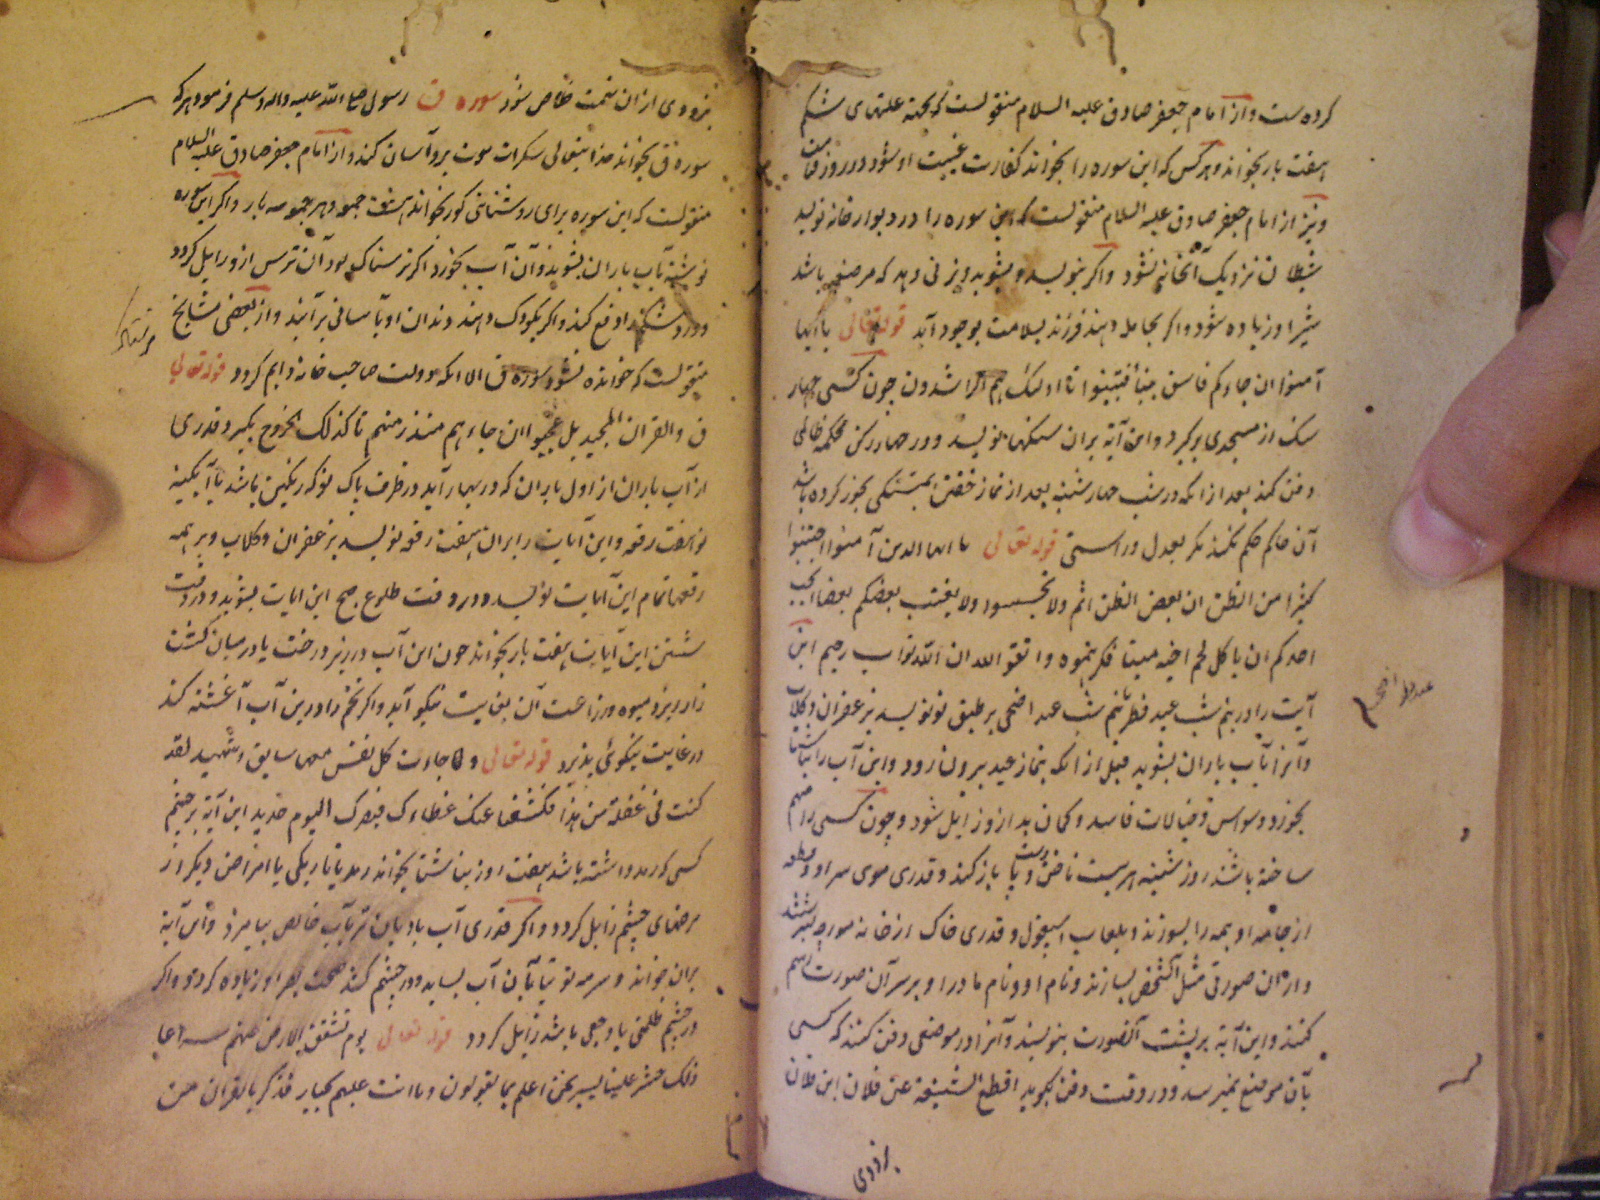 کرده ست و از امام جعفر صادق علیه السلام منقولست که بجهة علتهای شکم
هفت بار بخواند و هر کس که این سوره را بخواند کفارت غیبت او شود در روز قیامت
و نیز از امام جعفر صادق علیه السلام منقولست که این سوره را در دیوار خانه نویسد
شیطان نزدیک آنخانه نشود و اگر بنویسد و بشوید و بزنی دهد که مرضعه باشد
شیر او زیاده شود و اگر بحامل دهند فرزند بسلامت بوجود آید قوله تعالی یا ایها
آمنوا ان جاءکم فاسق بنبأ فتبینوا تا اولئک هم الراشدون چون کسی چهار
سنک از مسجدی برگیرد و این آیة بران سنکها نویسد و در چهار رکن محکمه ظالمی
دفن کند بعد از آنکه در شب چهارشنبه بعد از نماز خفتن
آن حاکم حکم نکند مگر بعدل و راستی قوله تعالی یا ایها الذین آمنوا اجتنبوا
کثیرا من الظن ان بعض الظن اثم ولا تجسسوا ولا یغتب بعضکم بعضا ایحب
احدکم ان یاکل لحم اخیه میتا فکرهتموه و اتقو الله ان الله تواب رحیم این
آیت را در نیم شب عید فطر نیم شب عید اضحی بر طبق نو نویسد بزعفران و گلاب
و آنرا بآب باران بشوید قبل از آنکه بنماز عید بیرون رود و این آب را ناشتا
بخورد وسواس و خیالات فاسد و گمان بد ازو زایل شود و چون کسی را متهم
ساخته باشند روز شنبه هر بیست ناخن دست و پا باز کند و قدری موی سر او و قطعه
از جامه او همه را بسوزند و بلعاب اسبغول و قدری خاک از خانه مورچه بسرشند
و از آن صورتی مثل آنشخص بسازند و نام او و نام مادر او بر سر آن صورت رسم
کنند و این آیة بر پشت آنصورت بنویسند و آنرا در موضعی دفن کنند که کسی
بآن موضع نمیرسد و در وقت دفن بگوید اقطع الشنیعة عن فلان ابن فلان
بزودی
عید اضحی
بزودی از ان تهمت خلاص شود سوره ق رسول صلی الله علیه و اله و سلم فرمود هر که
سوره ق بخواند خدا یتعالی سکرات موت برو آسان کند و از امام جعفر صادق علیه السلام
منقولست که این سوره برای روشنائی کور بخواند هفت جمعه و هر جمعه سه بار و اگر این سوره
نوشته بآب باران بشوید و آن آب بخورد اگر ترسناک بود آن ترس ازو زایل گردد
و درد شکم او دفع کند و اگر بکودک دهند دندان او بآسانی برآیند و از بعضی مشایخ
ترسناک
منقولست که خوانده نشود سوره ق الا آنکه دولت صاحب خانه دایم گردد قوله تعالی
ق والقران المجید بل عجبوا ان جاءهم منذر منهم تا کذلک الخروج بگیرد قدری
از آب باران از اول باران که در بهار آید در ظرف پاک نو که رنگین باشد یا آبگینه
نو هفت رقعه و این آیات را بران هفت رقعه نویسد بزعفران و گلاب و بر همه
رقعها تمام این آیات نویسد و در وقت طلوع صبح این ایات بشوید و در وقت
شستن این آیات هفت بار بخواند چون این آب در زیر درخت یا در میان کشت
زار ریزد میوه و زراعت آن بغایت نیکو آید و اگر تخم را درین آب آغشته کند
در غایت نیکوئی پذیرد قوله تعالی و جاءت کل نفس معها سایق و شهید لقد
کنت فی غفلة من هذا فکشفنا عنک غطاءک فبصرک الیوم حدید این آیة بر چشم
کسی که رمد داشته باشد هفت روز ناشتا بخواند رمد یا تاریکی یا امراض دیگر از
مرضهای چشم زایل گردد و اگر قدری آب بادیان تر بآب خالص بیامیزد و این آیة
بران خواند و سرمه توتیا بآن آب بساید و در چشم کشد صحت بصر او زیاده گردد و اگر
در چشم ظلمتی یا وجعی باشد زایل گردد قوله تعالی یوم تشقق الارض عنهم سراعا
ذلک حشر علینا یسیر نحن اعلم بما یقولون و ما انت علیهم بجبار فذکر بالقران من